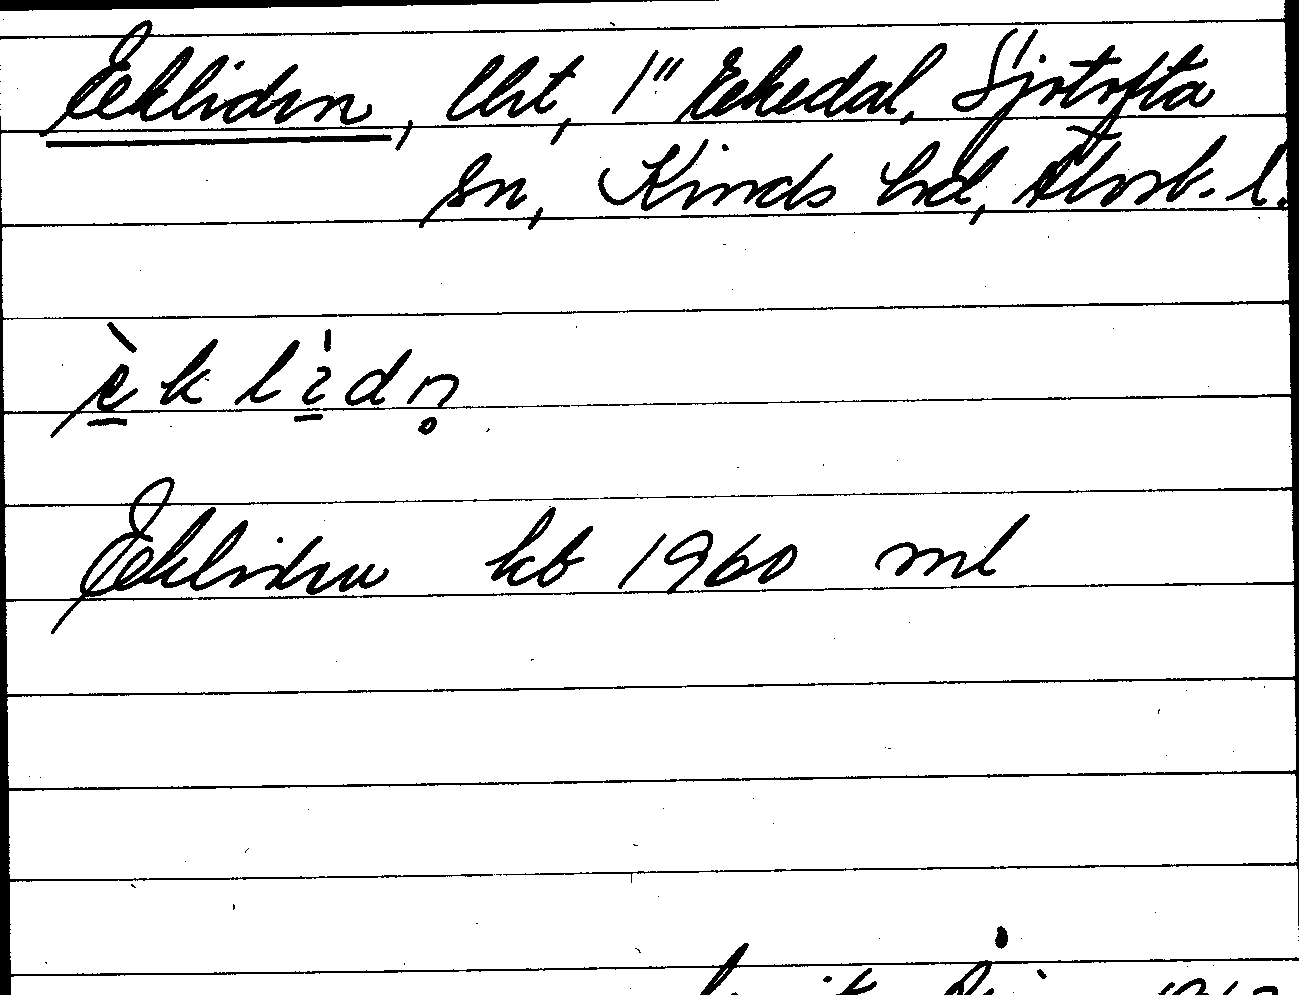 Ekliden, lht, 1" Ekedal, Sjötofta
sn, Kinds hd, Älvsb. l.
èklìdn̥
Ekliden kb 1960 ml